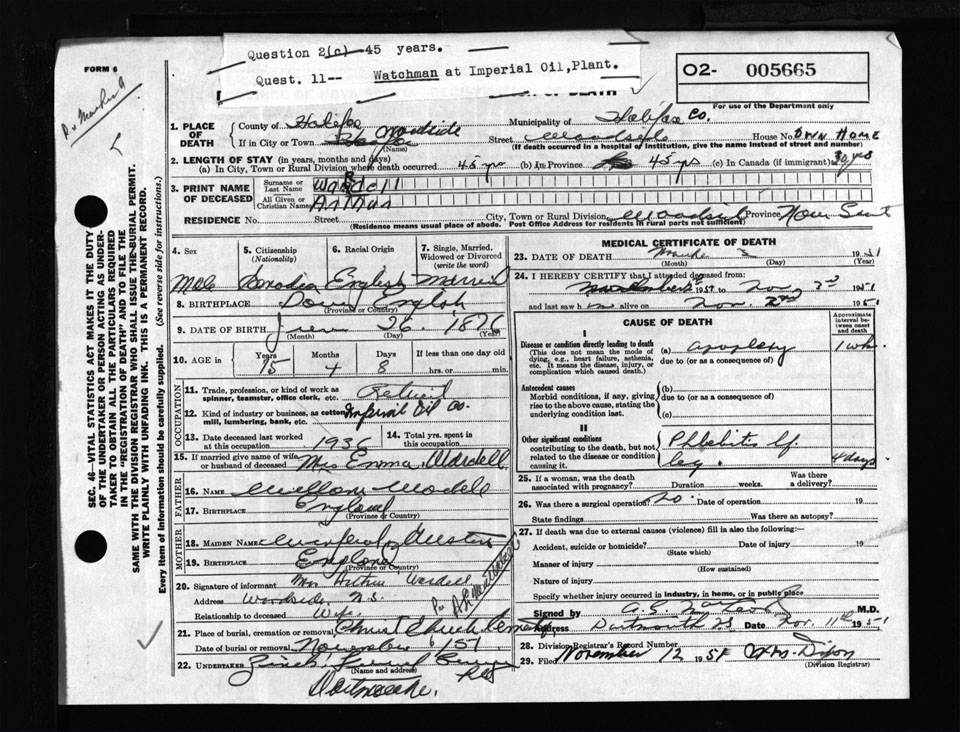 Question 2(c) - 45 years.
Quest. 11-- Watchman at Imperial Oil, Plant.
FORM 6
O2- 005665
OF DEATH
For use of the Department only
1. PLACE OF DEATH
County of Halifax
Municipality of Halifax Co.
If in City or Town Woodside (Name)
Street Woodside House No. Own Home
(If death occurred in a hospital or institution, give the name instead of street and number)
2. LENGTH OF STAY (in years, months and days)
(a) In City, Town or Rural Division where death occurred 45 yrs (b) In Province 45 yrs (c) In Canada (if immigrant)
3. PRINT NAME OF DECEASED
Surname or Last Name Wardell
All Given or Christian Names Arthur
RESIDENCE No. Street City, Town or Rural Division Woodside Province Nova Scotia
(Residence means usual place of abode. Post Office Address for residents in rural parts not sufficient)
4. Sex Male
5. Citizenship (Nationality) Canadian
6. Racial Origin English
7. Single, Married, Widowed or Divorced (write the word) Married
8. BIRTHPLACE (Province or Country)
9. DATE OF BIRTH 26 1876
(Month) (Day) (Year)
10. AGE in Years 75 Months 4 Days 8 If less than one day old hrs. or min.
OCCUPATION
11. Trade, profession, or kind of work as spinner, teamster, office clerk, etc. Retired
12. Kind of industry or business, as cotton mill, lumbering, bank, etc. Imperial Oil Co.
13. Date deceased last worked at this occupation 1936
14. Total yrs. spent in this occupation
15. If married give name of wife or husband of deceased Mrs Emma Wardell
FATHER
16. NAME
17. BIRTHPLACE England
(Province or Country)
MOTHER
18. MAIDEN NAME
19. BIRTHPLACE England
(Province or Country)
20. Signature of informant Mrs Arthur Wardell
Address Woodside, N.S.
Relationship to deceased Wife
21. Place of burial, cremation or removal Christ Church Cemetery
Date of burial or removal November 1951
22. UNDERTAKER
Dartmouth.
MEDICAL CERTIFICATE OF DEATH
23. DATE OF DEATH 1951
(Month) (Day) (Year)
24. I HEREBY CERTIFY that I attended deceased from:
1951 to Nov 2nd 1951
and last saw h alive on Nov. 2nd 1951
CAUSE OF DEATH
Approximate interval between onset and death
I
Disease or condition directly leading to death (a) apoplexy 1 wk.
(This does not mean the mode of dying, e.g., heart failure, asthenia, etc. It means the disease, injury, or complication which caused death.)
due to (or as a consequence of)
Antecedent causes (b)
Morbid conditions, if any, giving rise to the above cause, stating the underlying condition last.
due to (or as a consequence of)
(c)
II
Other significant conditions contributing to the death, but not related to the disease or condition causing it.
Phlebitis of leg. 4 days
25. If a woman, was the death associated with pregnancy? Duration weeks. Was there a delivery?
26. Was there a surgical operation? No. Date of operation 19
State findings Was there an autopsy?
27. If death was due to external causes (violence) fill in also the following:—
Accident, suicide or homicide? Date of injury 19
(State which)
Manner of injury
(How sustained)
Nature of injury
Specify whether injury occurred in industry, in home, or in public place
Signed by M.D.
Address Dartmouth N.S. Date Nov. 11th 1951
28. Division Registrar's Record Number
29. Filed November 12 1951
(Date) and signed (Division Registrar)
SEC. 46—VITAL STATISTICS ACT MAKES IT THE DUTY
OF THE UNDERTAKER OR PERSON ACTING AS UNDERTAKER
TO OBTAIN ALL THE PARTICULARS REQUIRED
IN THE "REGISTRATION OF DEATH" AND TO FILE THE
SAME WITH THE DIVISION REGISTRAR WHO SHALL ISSUE THE BURIAL PERMIT.
WRITE PLAINLY WITH UNFADING INK. THIS IS A PERMANENT RECORD.
Every item of information should be carefully supplied. (See reverse side for instructions.)